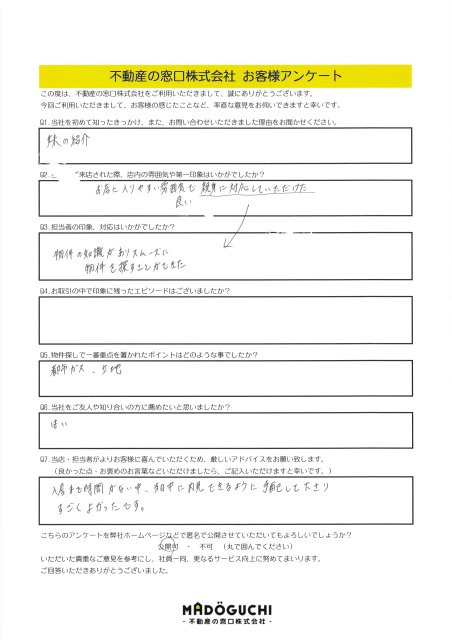 不動産の窓口株式会社 お客様アンケート
この度は、不動産の窓口株式会社をご利用いただきまして、誠にありがとうございます。
今回ご利用いただきまして、お客様の感じたことなど、率直な意見をお伺いできますと幸いです。
Q1.当社を初めて知ったきっかけ、また、お問い合わせいただきました理由をお聞かせください。
妹の紹介
Q2.ご来店された際、店内の雰囲気や第一印象はいかがでしたか？
お店に入りやすい雰囲気で 親身に対応していただけた
良い
Q3.担当者の印象、対応はいかがでしたか？
物件の知識がありスムーズに
物件を探すことができた
Q4.お取引の中で印象に残ったエピソードはございましたか？
Q5.物件探しで一番重点を置かれたポイントはどのような事でしたか？
都市ガス、立地
Q6.当社をご友人や知り合いの方に薦めたいと思いましたか？
はい
Q7.当店・担当者がよりお客様に喜んでいただくため、厳しいアドバイスをお願い致します。
（良かった点・お褒めのお言葉などいただけましたら、ご記入いただけますと幸いです。）
入居まで時間がない中、当日中に内見できるように手配して下さり
すごくよかったです。
こちらのアンケートを弊社ホームページなどで匿名で公開させていただいてもよろしいでしょうか？
公開可 ・ 不可 （丸で囲んでください）
いただいた貴重なご意見を参考にし、社員一同、更なるサービス向上に努めてまいります。
ご回答いただきありがとうございました。
MADOGUCHI
- 不動産の窓口株式会社 -